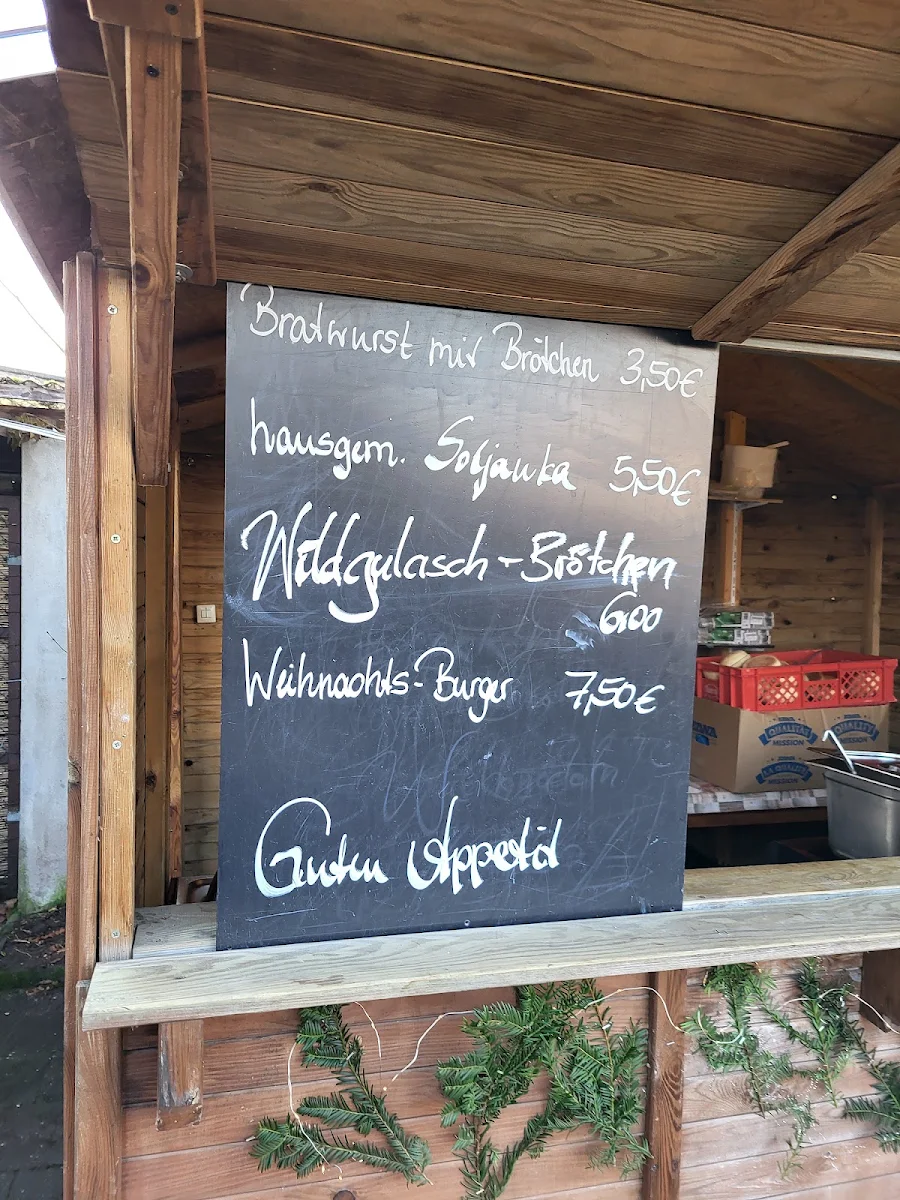 Bratwurst mit Brötchen 3,50€
hausgem. Soljanka 5,50€
Wildgulasch-Brötchen
6,00
Weihnachts-Burger 7,50€
Guten Appetit
QUALITY
MISSION
QUALITY
MISSION
QUALITY
MISSION